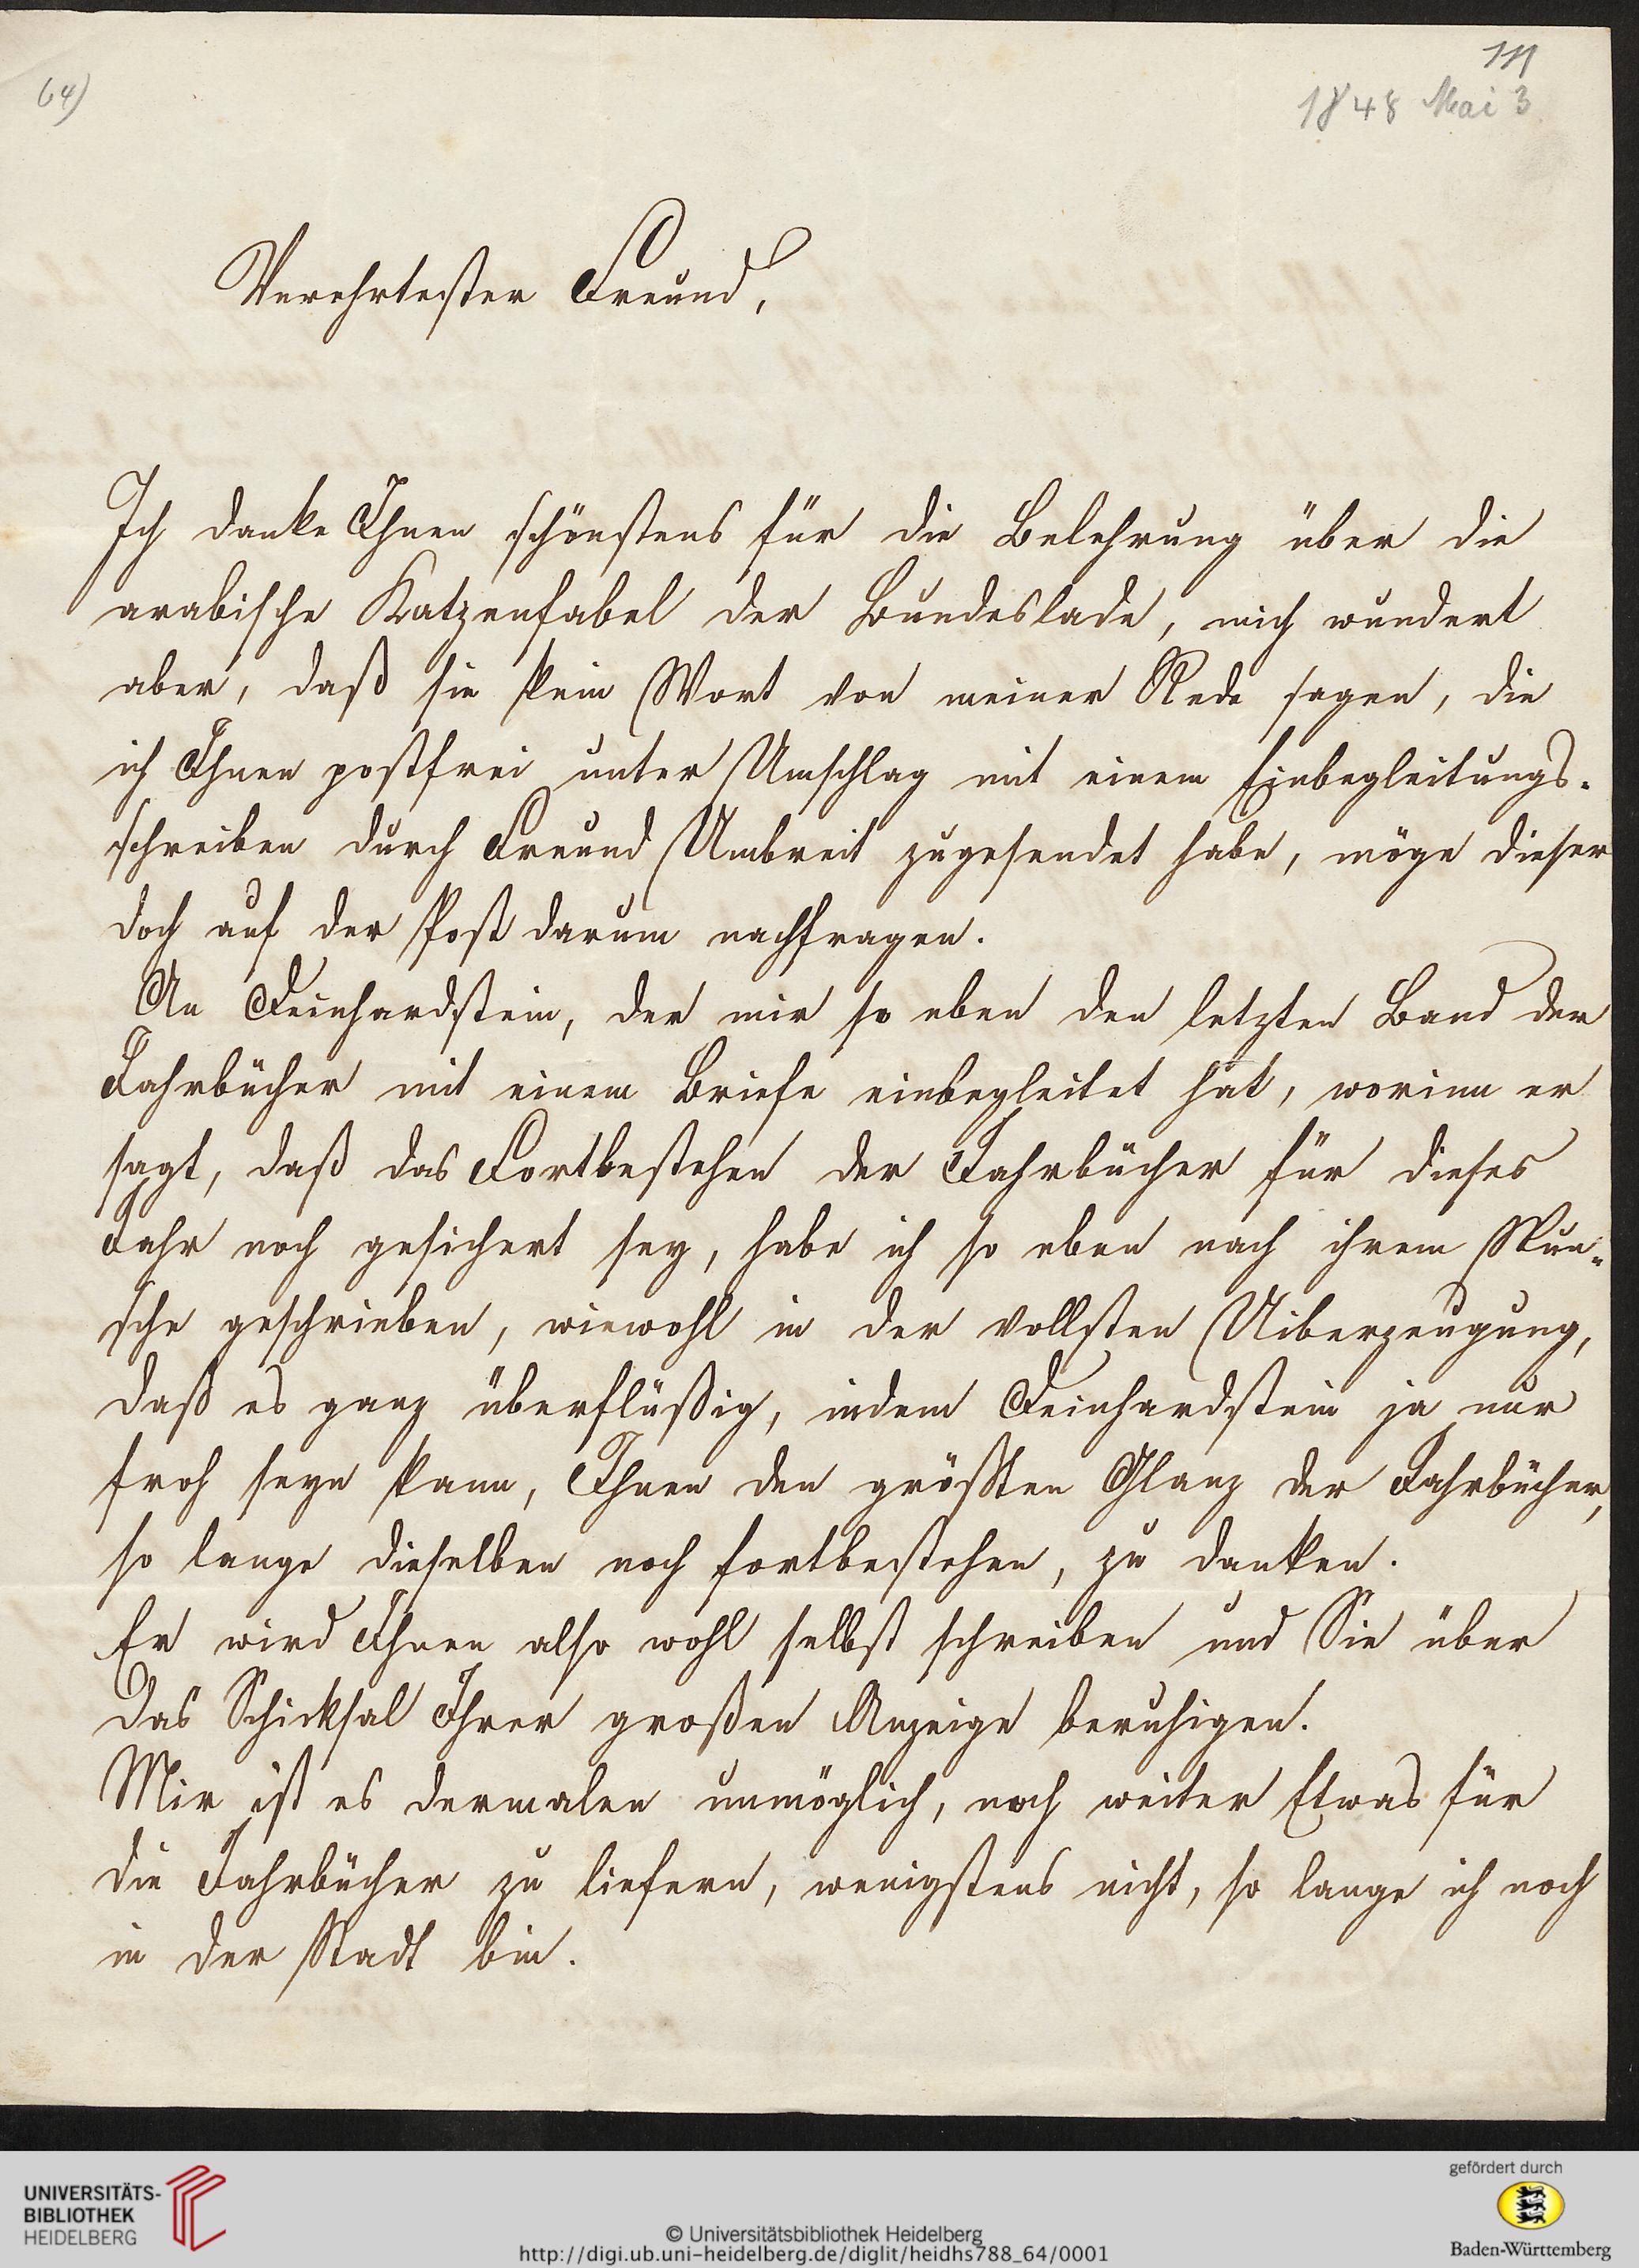 64)
111
1848 Mai 3
Verehrtester Freund,
Ich danke Ihnen schönstens für die Belehrung über die
arabische Katzenfabel der Bundeslade, mich wundert
aber, daß sie kein Wort von meiner Rede sagen, die
ich Ihnen postfrei unter Umschlag mit einem Einbegleitungs-
schreiben durch Freund Umbreit zugesendet habe, möge dieser
doch auf der Post darum nachfragen.
An Deinhardstein, der mir so eben den letzten Band der
Jahrbücher mit einem Briefe einbegleitet hat, worinn er
sagt, daß das Fortbestehen der Jahrbücher für dieses
Jahr noch gesichert sey, habe ich so eben nach ihrem Wun-
sche geschrieben, wiewohl in der vollsten Uiberzeugung,
daß es ganz überflüßig, indem Deinhardstein ja nur
froh seyn kann, Ihnen den größten Glanz der Jahrbücher,
so lange dieselben noch fortbestehen, zu danken.
Er wird Ihnen also wohl selbst schreiben und Sie über
das Schicksal Ihrer großen Anzeige beruhigen.
Mir ist es dermalen unmöglich, noch weiter Etwas für
die Jahrbücher zu liefern, wenigstens nicht, so lange ich noch
in der Stadt bin.
UNIVERSITÄTS-
BIBLIOTHEK
HEIDELBERG
© Universitätsbibliothek Heidelberg
http://digi.ub.uni-heidelberg.de/diglit/heidhs788_64/0001
gefördert durch
Baden-Württemberg